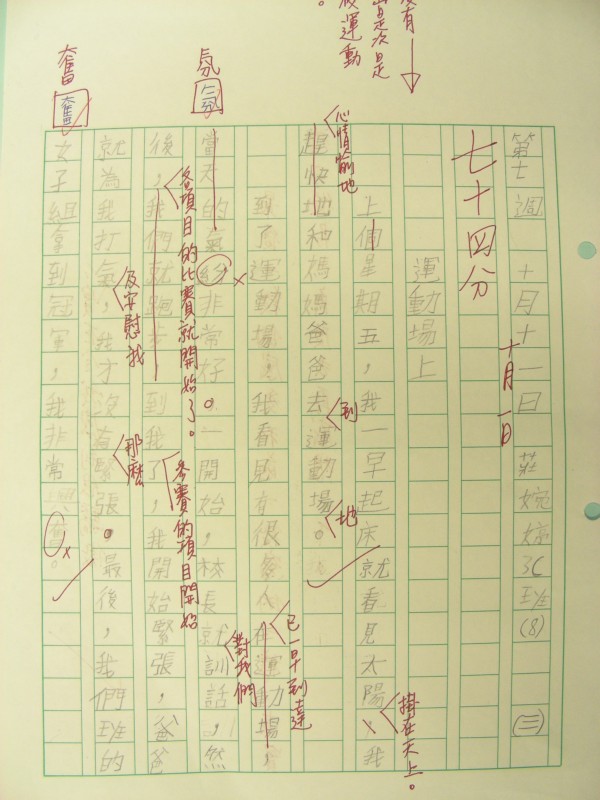 第七週 十月十一日 莊婉婷 3C班 (8) (三)
十月一日
七十四分
運動場上
上個星期五,我一早起床就看見太陽,我
掛在天上。
趕快地和媽媽爸爸去運動場。
心情愉
地
到
地
到了運動場,我看見有很多人在運動場,
已一早到達
當天的氣紛非常好。一開始,校長就訓話,然
氛
氛
對我們
後,我們就跑步 到我了,我開始緊張,爸爸
各項目的比賽就開始了。
參賽的項目開始
就為我打氣,我才沒有緊張。最後,我們班的
及安慰我
那麼
女子組拿到冠軍,我非常興奮。
奮
奮
是次是
運動